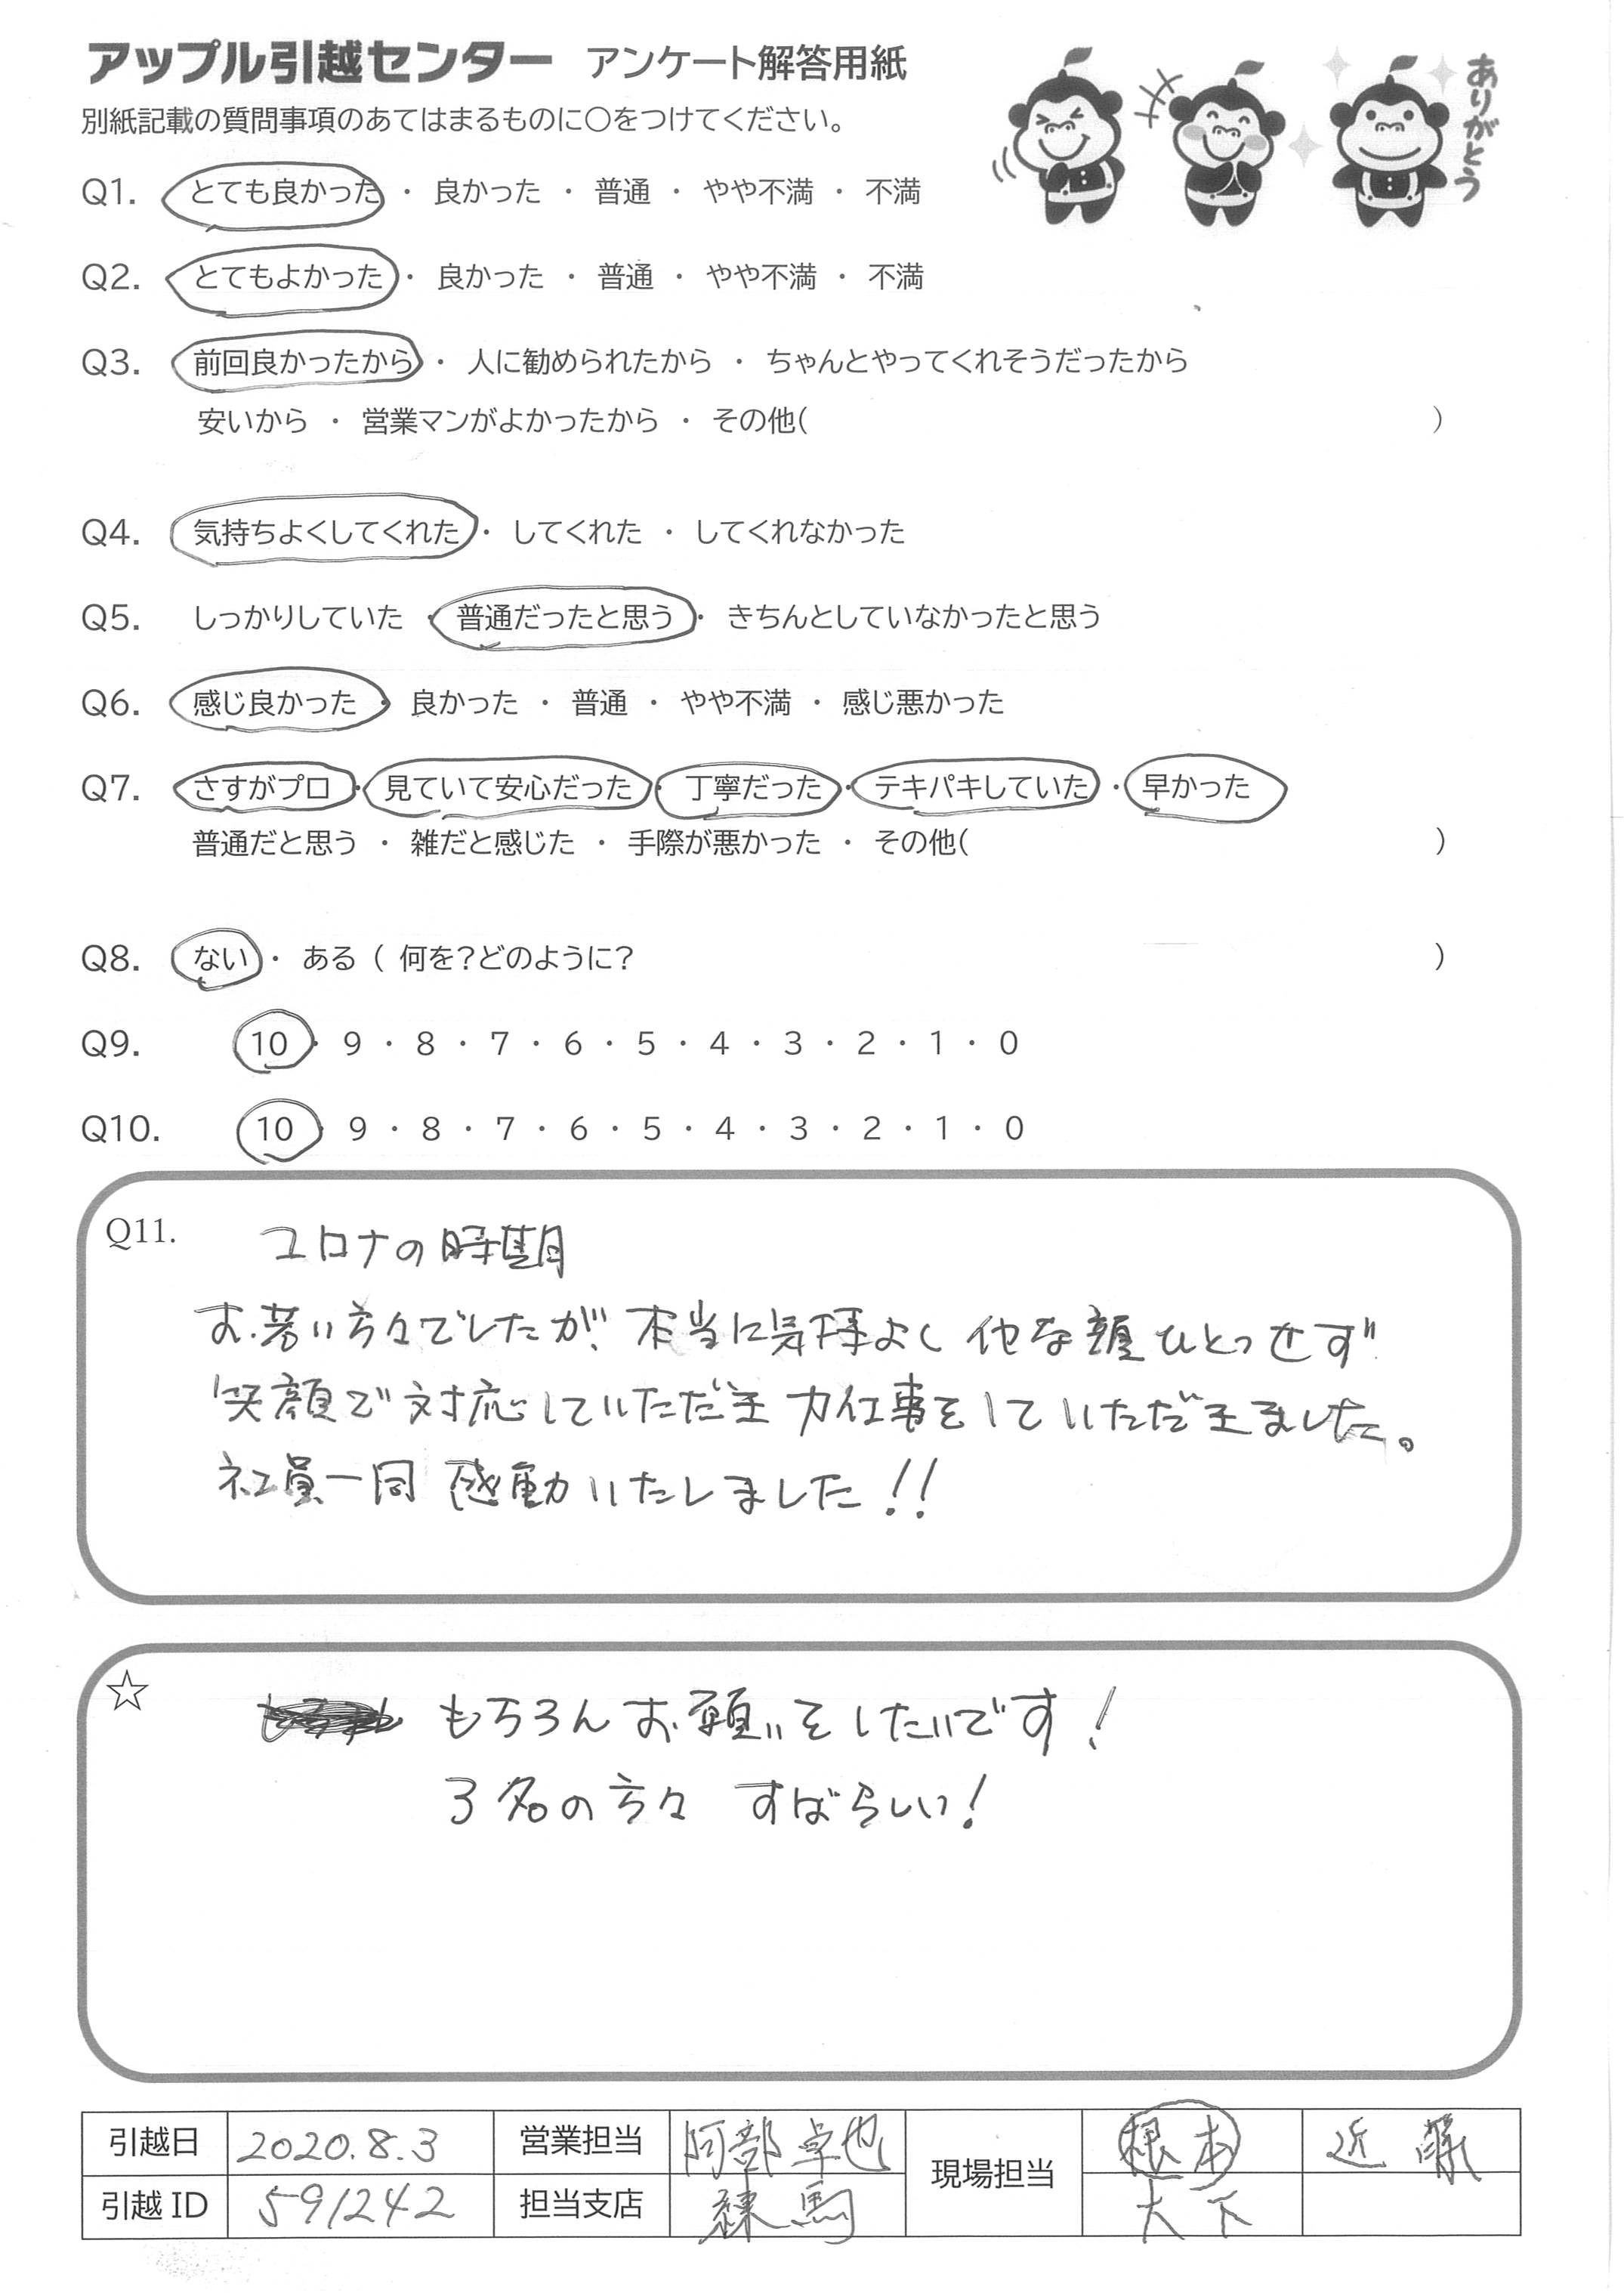 アップル引越センター アンケート解答用紙
ありがとう
別紙記載の質問事項のあてはまるものに〇をつけてください。
Q1. とても良かった ・ 良かった ・ 普通 ・ やや不満 ・ 不満
Q2. とてもよかった ・ 良かった ・ 普通 ・ やや不満 ・ 不満
Q3. 前回良かったから ・ 人に勧められたから ・ ちゃんとやってくれそうだったから
安いから ・ 営業マンがよかったから ・ その他( )
Q4. 気持ちよくしてくれた ・ してくれた ・ してくれなかった
Q5. しっかりしていた ・ 普通だったと思う ・ きちんとしていなかったと思う
Q6. 感じ良かった ・ 良かった ・ 普通 ・ やや不満 ・ 感じ悪かった
Q7. さすがプロ ・ 見ていて安心だった ・ 丁寧だった ・ テキパキしていた ・ 早かった
普通だと思う ・ 雑だと感じた ・ 手際が悪かった ・ その他( )
Q8. ない ・ ある ( 何を?どのように? )
Q9. 10 ・ 9 ・ 8 ・ 7 ・ 6 ・ 5 ・ 4 ・ 3 ・ 2 ・ 1 ・ 0
Q10. 10 ・ 9 ・ 8 ・ 7 ・ 6 ・ 5 ・ 4 ・ 3 ・ 2 ・ 1 ・ 0
Q11. コロナの時期
お若い方々でしたが、本当に気持よく 他な顔ひとつせず
笑顔で対応していただき 力仕事をしていただきました。
社員一同 感動いたしました!!
☆ もちろんお願いをしたいです!
3名の方々 すばらしい!
引越日 2020.8.3 営業担当 阿部卓也 現場担当 根本 近藤
引越ID 591242 担当支店 練馬 大下